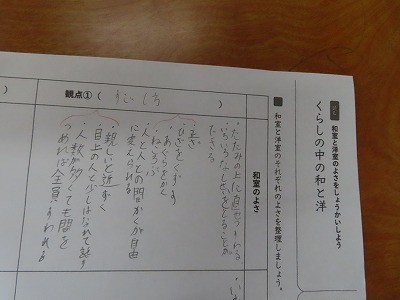 和室と洋室のよさをしょうかいしよう
くらしの中の和と洋
■和室と洋室のそれぞれのよさを整理しましょう。
和室のよさ
観点①（すごし方）
・たたみの上に直せつすわれる
・いろいろなしせいをとることが
できる
・正ざ
・ひざをくずす
・あぐらをかく
人と人との間かくが自由
に変えられる
・親しいと近づく
・目上の人と少しはなれて話す
・人数が多くても間を
つめれば全員すわれる